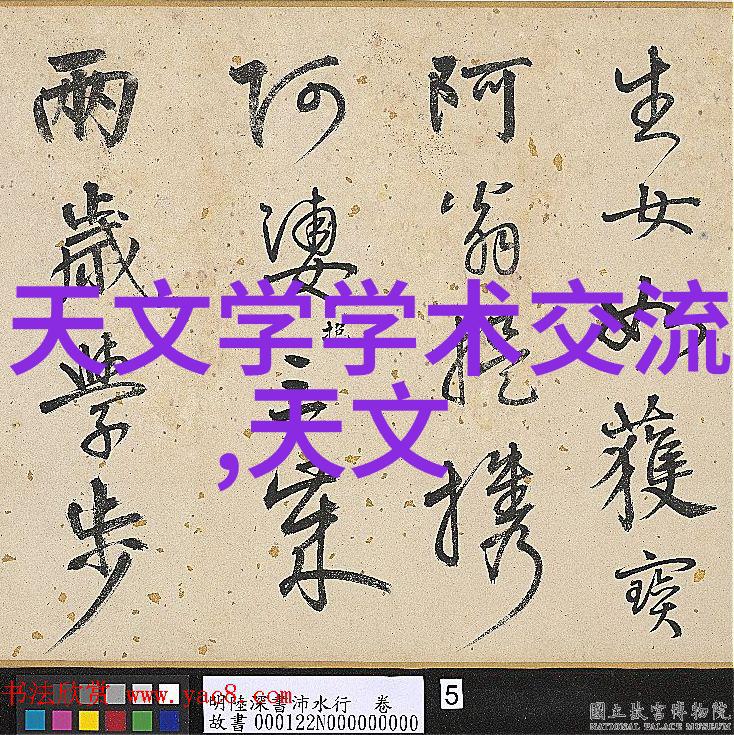 生女如獲寶
阿翁提携
阿婆招
來
兩歲學步
天文学学术交流
,天文
书法欣赏 www.yac8.com
明陸深書沛水行 卷
故書 000122N000000000
5
國立故宮博物院
NATIONAL PALACE MUSEUM